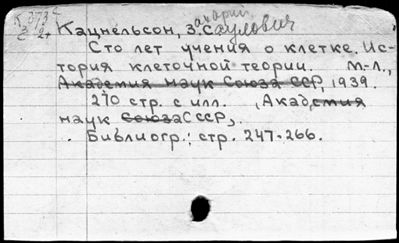 Кацнельсон, З. Саулович
Сто лет учения о клетке. Ис-
тория клеточной теории. М.-Л.,
Академия наук Союза ССР, 1939.
270 стр. с илл. (Академия
наук Союза СССР).
Библиогр.: стр. 247-266.